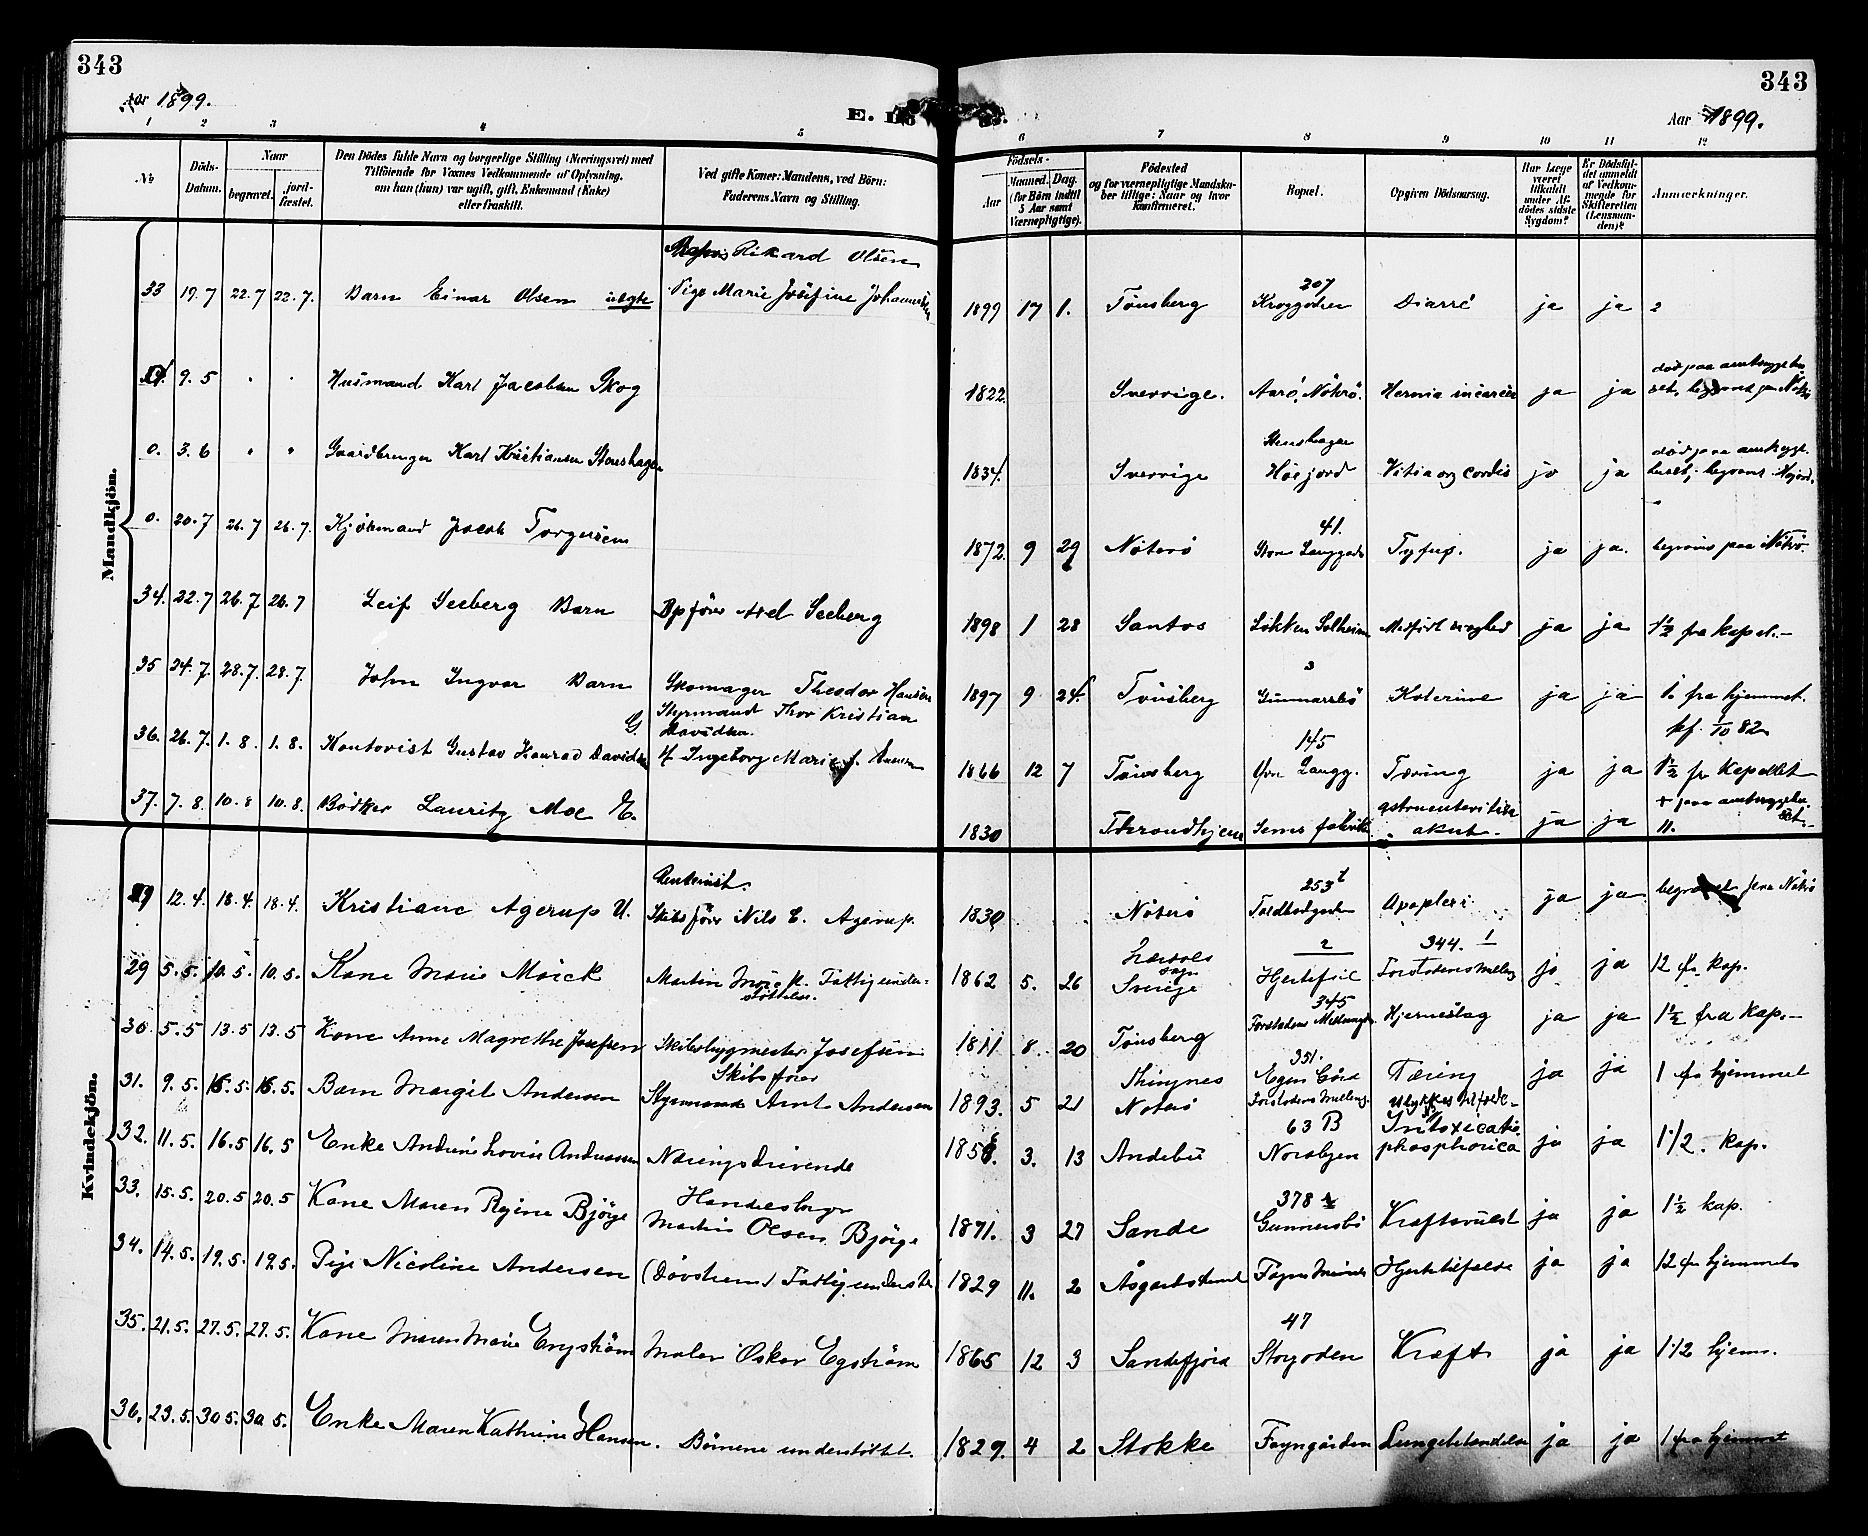 343
343
Aar 1899.
E. D
Aar 1899.
1 2 3 4 5 6 7 8 9 10 11 12
No
Döds-Datum.
Naar
begravet.
jord-fæstet.
Den Dödes fulde Navn og borgerlige Stilling (Næringsvei) med
Tilföiende for Voxnes Vedkommende af Oplysning,
om han (hun) var ugift, gift, Enkemand (Enke)
eller fraskilt.
Ved gifte Koner: Mandens, ved Börn:
Faderens Navn og Stilling.
Födsels-
Aar
Maaned.
Dag.
(for Börn indtil
5 Aar samt
Værnepligtige).
Födested
og for værnepligtige Mandska-
ber tillige: Naar og hvor
konfirmeret.
Bopæl.
Opgiven Dödsaarsag.
Har Læge
været
tilkaldt
under Af-
dödes sidste
Sygdom?
Er Dödsfal-
det anmeldt
af Vedkom-
mende for
Skifteretten
(Lensman-
den)?
Anmærkninger.
Mandkjön.
Rikard Olsen
33 19.7 22.7 22.7. Barn Einar Olsen uægte Pige Marie Josefine Johannesen 1899 17 1. Tönsberg 207 Diarré ja ja 2
9.5 " " Husmand Karl Jacobsen Skog 1822. Sverrige. Aarö, Nöterö. Hernia incarcer ja ja död paa amtssygehu
set, begravet paa Nöterö
0. 3.6 " " Gaardbruger Karl Kristiansen Stenshagen 1834. Sverrige Stenshagen Höijord Vitia org cordis ja ja död paa amtssyge-
huset, begravet Höjord.
0. 20.7 26.7 26.7. Kjöbmand Jacob Torgersen 1872. 9 29 Nöterö 41. Store Langgade Tyfus. ja ja. begraves paa Nöterö
34. 22.7 26.7 26.7 Leif Seeberg Barn Axel Seeberg 1898 1 28 Santos Lökken Solheim Medfödt svaghed ja ja 1½ fra kapel.-
35 24.7. 28.7. 28.7. John Ingvar Barn Skomager Theodor Hansen 1897 9 24. Tönsberg 3 Gunnarsbö Kolerine ja ja 1. fra hjemmet.
36. 26.7. 1.8. 1.8. Kontorist Gustav Konrad Davidsen G. Styrmand Thor Kristian
Davidsen.
Ingeborg Marie 1866 12 7 Tönsberg 145 Övre Langg. Tæring ja ja 1½ fr Kapellet
37. 7.8. 10.8 10.8. Bödker Lauritz Moe E. 1830 Throndhjem Sems fabrikker akut. ja ja + paa amtssygehu-
set.-
11.
Kvindekjön.
12.4. 18.4. 18.4. Kristiane Agerup U. Rentenist.
Skibsförer Nils E. Agerup. 1830 Nöterö 253 Toldbodgaden Apoplexi ja ja begravet paa Nöterö
29 5.5. 10.5. 10.5. Kone Marie Moick Martin Moick. Fattigunder-
stöttelse. 1862 5. 26 sogn
Sverige 2 Hjertefeil 344. 1 ja ja 12 fra kap.
30. 5.5 13.5 13.5 Kone Anne Magrethe Josefsen Skibsbygmester Josefsen 1811 8. 20 Tönsberg 345 Forstadens Hjerneslag ja ja 1½ fra Kap.-
31. 9.5. 15.5. 15.5. Barn Margit Andersen Skibsförer
Styrmand Arnt Andersen 1893. 5 21 Nöterö 351. Egen Gård Tæring ja ja 1 fra hjemmet
32. 11.5. 16.5 16.5 Enke Andrine Lovise Andreassen Næringsdrivende 1858. 3. 13 Andebu 63 B Norbyen Ulykkestilfælde-
Intoxicatio
phosphorica ja ja 1½. kap.
33. 15.5. 20.5 20.5 Kone Maren Regine Bjöige Handelsborger
Martin Olsen Bjöige 1871. 3 27 Sande 378 Gunnersbö Kraftsvulst ja ja 1½ kap.
34. 14.5. 19.5. 19.5. Pige Nicoline Andersen (Dövstum) Fattigunderst 1829 11. 2 Åsgaardstrand Hjertetilfælde ja ja 12 fra hjemmet
35. 21.5. 27.5. 27.5. Kone Maren Marie Engström Maler Oskar Egström 1865 12 3 Sandefjord 47 Storgaden Kræft ja ja 1½ hjem.
36. 23.5. 30.5. 30.5. Enke Maren Kathrine Hansen. Börnene understöttet. 1829. 4 2 Stokke Fayngården Lungebetændelse ja ja 1 fra hjemmet